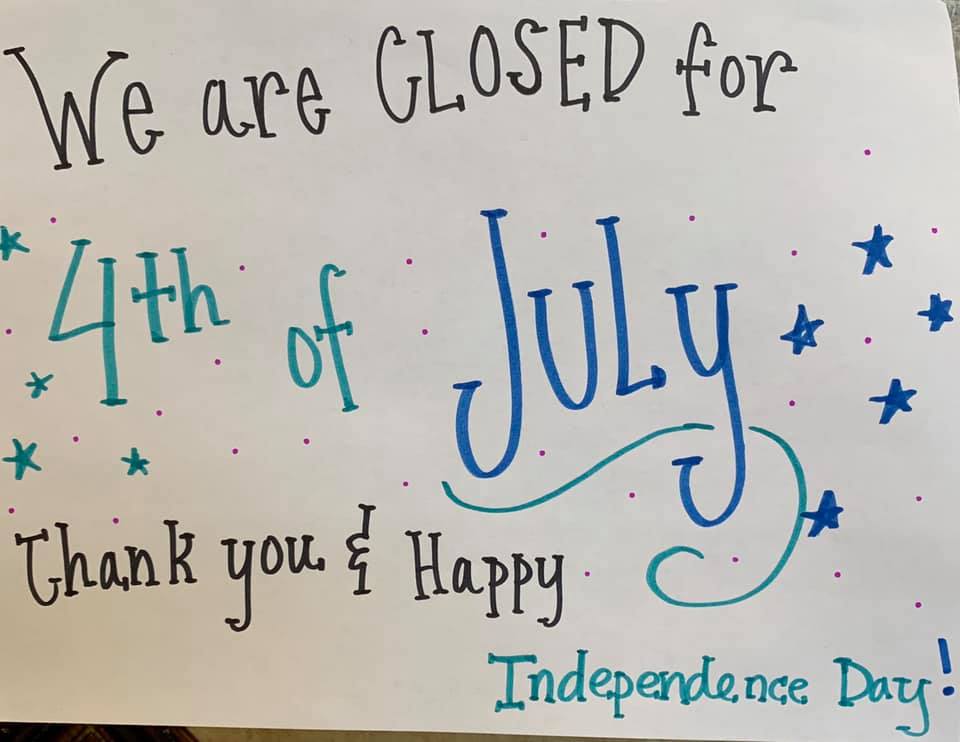 We are CLOSED for
4th of JULY
Thank you & Happy
Independence Day!